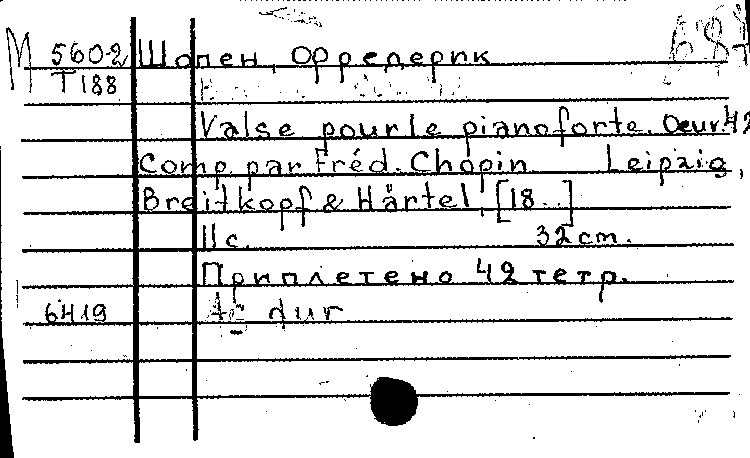 М 5602 Шопен, Фредерик
Т188
Valse pour le pianoforte. Oeuv.42
Comp. par Fréd. Chopin Leipzig,
Breitkopf & Härtel, [18..]
11 с. 32 cm.
Приплетено 42 тетр.
6419 As dur